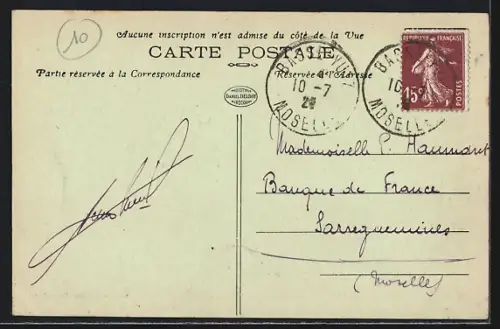 10
Aucune inscription n'est admise du côté de la Vue
CARTE POSTALE
Partie réservée à la Correspondance
Réservée à l'Adresse
10 -7
MOSELLE
RÉPUBLIQUE FRANÇAISE
15c
POSTES
10
MOSELLE
Mademoiselle
Banque de France
Sarreguemines
(Moselle)